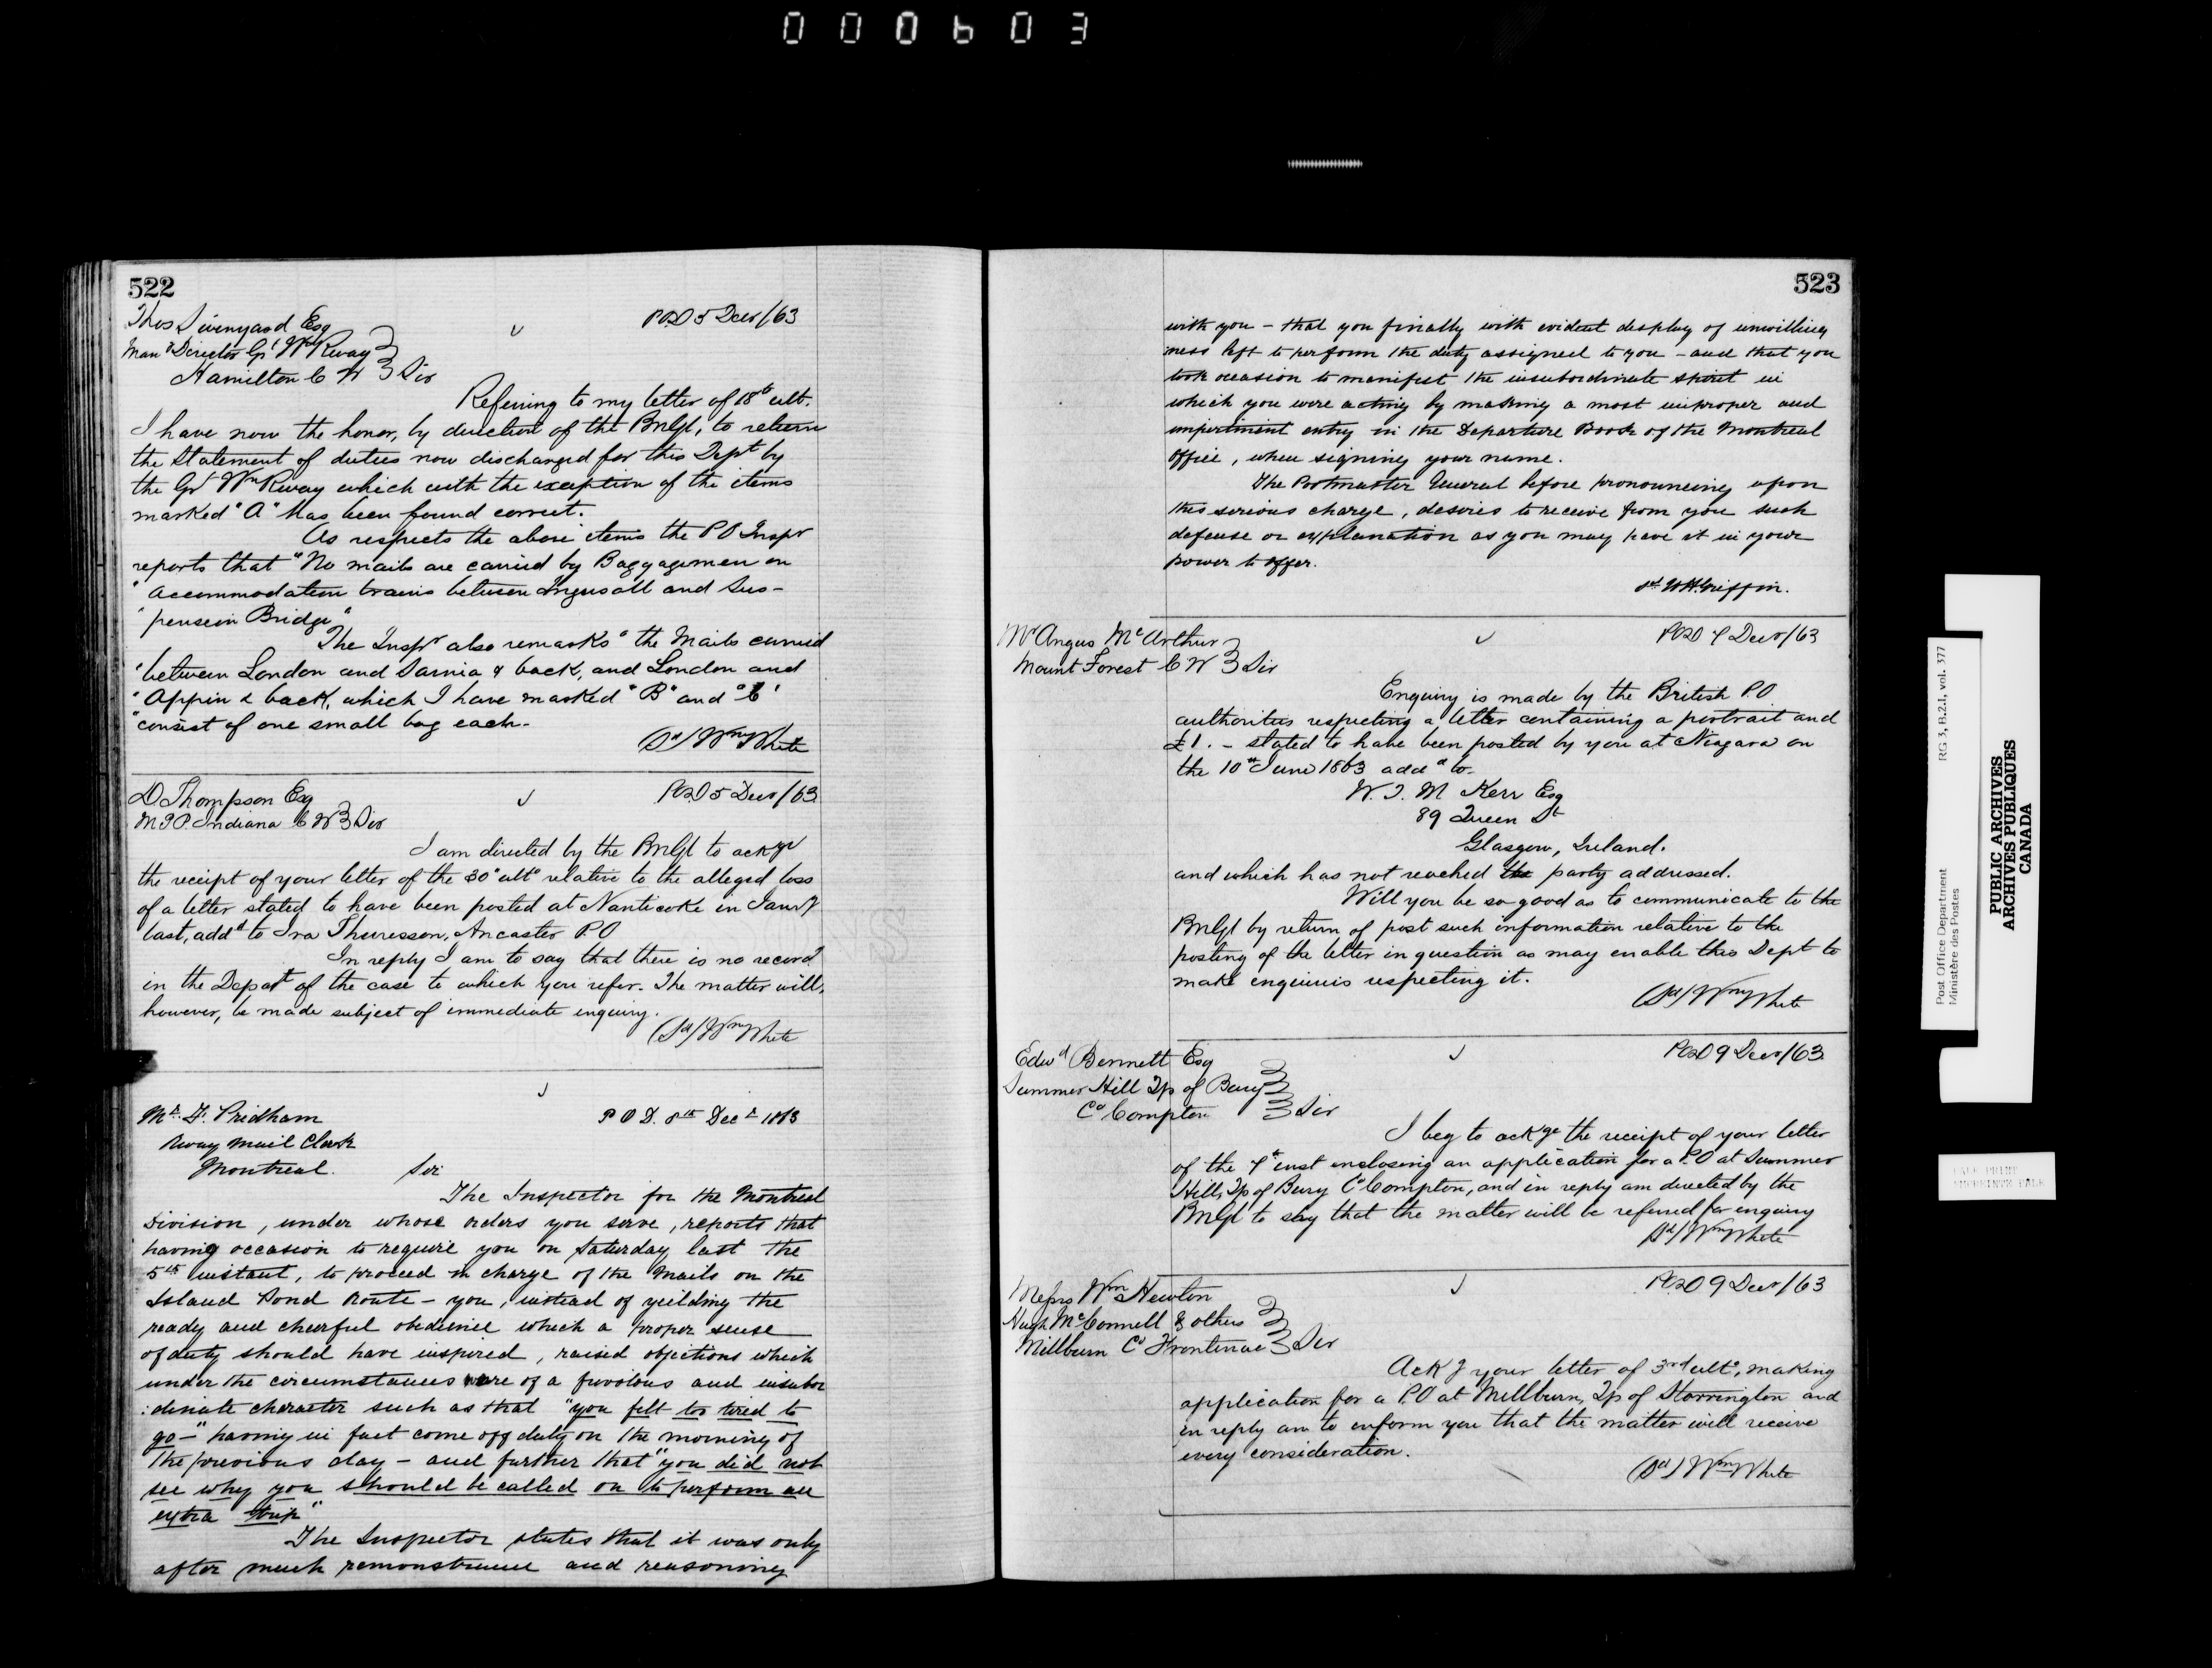 000603
522
Thos Swinyard Esq
POD 5 Decr/63
Mang Director Gt Wn Rway
Hamilton C W Sir
Referring to my letter of 18th ult.
I have now the honor, by direction of the PmGl, to return
the Statement of duties now discharged for this Dept by
the Gt Wn Rway which with the exception of the items
marked "A" has been found correct.
As respects the above items the P O Inspr
reports that "No mails are carried by Baggagemen on
"accommodation trains between Ingersoll and Sus-
"pension Bridge"
The Inspr also remarks "the Mails carried
"between London and Sarnia & back, and London and
"Appin & back, which I have marked "B" and "C"
"consist of one small bag each.
(Sd) Wm White
D Thompson Esq
POD 5 Decr/63
M.P.P. Indiana C W Sir
I am directed by the PmGl to ackge
the receipt of your letter of the 30" ulto relative to the alleged loss
of a letter stated to have been posted at Nanticoke in Jany
last, addd to Ira Thuresson, Ancaster P.O
In reply I am to say that there is no record
in the Depart of the case to which you refer. The matter will,
however, be made subject of immediate inquiry.
(Sd) Wm White
Mr. F. Pridham
P O D. 8th Decr 1863
Rway Mail Clerk
Montreal. Sir
The Inspector for the Montreal
Division, under whose orders you serve, reports that
having occasion to require you on Saturday last the
5th instant, to proceed in charge of the Mails on the
Island Pond Route - you, instead of yeilding the
ready and cheerful obedience which a proper sense
of duty should have inspired, raised objections which
under the circumstances were of a frivolous and insubor
:dinate character such as that "you felt too tired to
go-" having in fact come off duty on the morning of
the previous day - and further that "you did not
see why you should be called on to perform an
extra trip"
The Inspector states that it was only
after much remonstrance and reasoning
523
with you - that you finally with evident display of unwilling
ness left to perform the duty assigned to you - and that you
took occasion to manifest the insubordinate spirit in
which you were acting by making a most improper and
impertinent entry in the Departure Book of the Montreal
office, when signing your name.
The Postmaster General before pronouncing upon
this serious charge, desires to receive from you such
defense or explanation as you may have it in your
power to offer.
sd W.H. Griffin.
Mr Angus McArthur
POD 9 Decr/63
Mount Forest C W Sir
Enquiry is made by the British P.O
authorities respecting a letter containing a portrait and
£1. - stated to have been posted by you at Niagara on
the 10th June 1863 addd to
W. J. M Kerr Esq
89 Queen St
Glasgow, Ireland.
and which has not reached the party addressed.
Will you be so good as to communicate to the
PmGl by return of post such information relative to the
posting of the letter in question as may enable this Dept to
make enquiries respecting it.
(Sd) Wm White
Edwd Bennett Esq
POD 9 Decr/63
Summer Hill Tp of Bury
Co Compton Sir
I beg to ackge the receipt of your letter
of the 4th inst enclosing an application for a P.O at Summer
Hill, Tp of Bury Co Compton, and in reply am directed by the
PmGl to say that the matter will be referred for enquiry
Sd/ Wm White
Messrs Wm Newton
POD 9 Decr/63
Hugh McConnell & others
Millburn Co Frontenac Sir
Ackg your letter of 3rd ulto, making
application for a P.O at Millburn, Tp of Storrington and
in reply am to inform you that the matter will receive
every consideration.
(Sd) Wm White
Post Office Department
Ministère des Postes
RG 3, B.2.1, vol. 377
PUBLIC ARCHIVES
ARCHIVES PUBLIQUES
CANADA